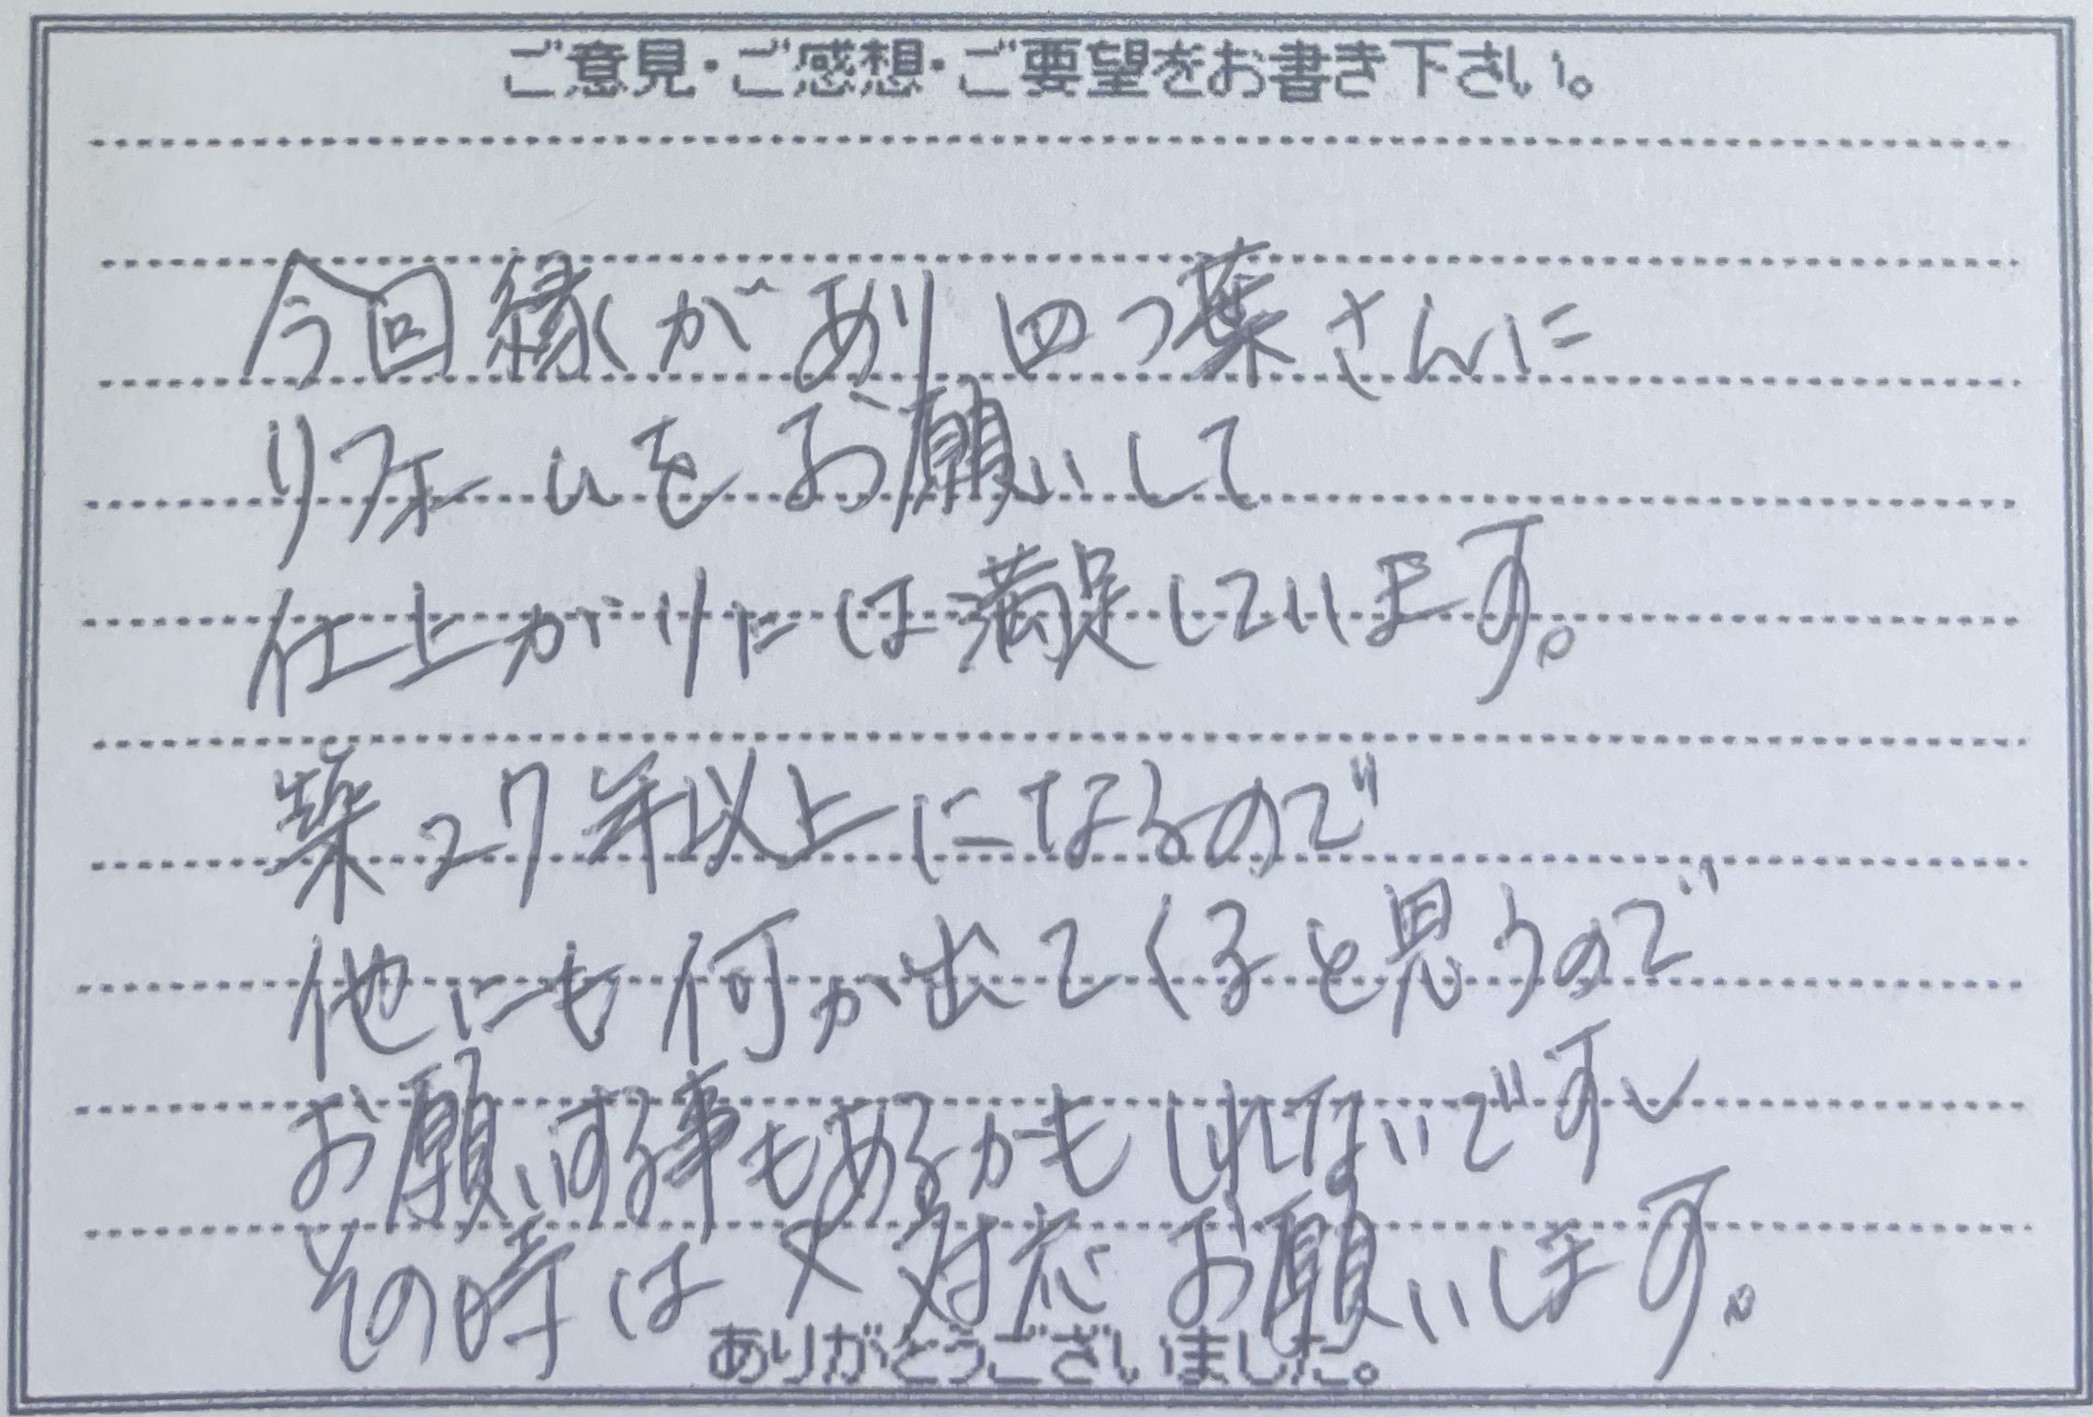 ご意見・ご感想・ご要望をお書き下さい。
今回縁があり四つ葉さんに
リフォームをお願いして
仕上がりには満足しています。
築27年以上になるので
他にも何か出てくると思うので
お願いする事もあるかもしれないですし
その時は又対応お願いします。
ありがとうございました。